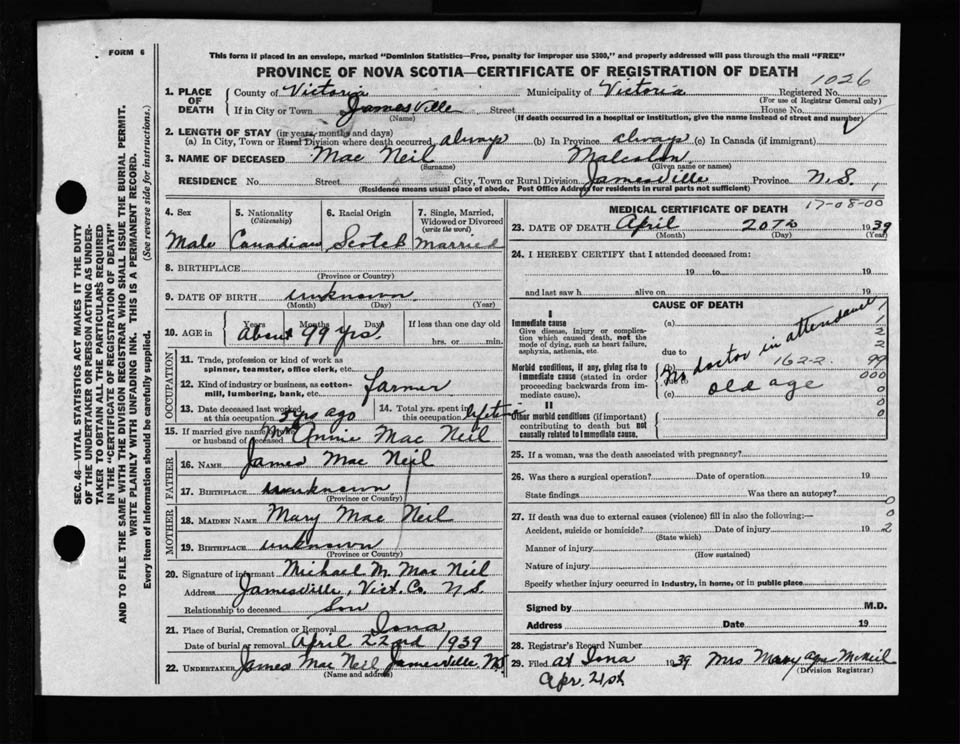 FORM 6
This form if placed in an envelope, marked "Dominion Statistics—Free, penalty for improper use $300," and properly addressed will pass through the mail "FREE"
PROVINCE OF NOVA SCOTIA—CERTIFICATE OF REGISTRATION OF DEATH
1026
1. PLACE OF DEATH County of Victoria Municipality of Victoria Registered No.
(For use of Registrar General only)
If in City or Town Jamesville Street House No.
(Name) (If death occurred in a hospital or institution, give the name instead of street and number)
2. LENGTH OF STAY (in years, months and days)
(a) In City, Town or Rural Division where death occurred always (b) In Province always (c) In Canada (if immigrant)
3. NAME OF DECEASED Mac Neil Malcolm
(Surname) (Given name or names)
RESIDENCE No. Street City, Town or Rural Division Jamesville Province N.S.
(Residence means usual place of abode. Post Office Address for residents in rural parts not sufficient)
17-08-00
4. Sex 5. Nationality 6. Racial Origin 7. Single, Married,
(Citizenship) Widowed or Divorced
(write the word)
Male Canadian Scotch Married
8. BIRTHPLACE
(Province or County)
9. DATE OF BIRTH unknown
(Month) (Day) (Year)
10. AGE in Years Months Days If less than one day old
About 99 yrs. hrs. or min.
OCCUPATION
11. Trade, profession or kind of work as
spinner, teamster, office clerk, etc.
12. Kind of industry or business, as cotton-
mill, lumbering, bank, etc. farmer
13. Date deceased last worked 14. Total yrs. spent in
at this occupation yrs ago this occupation
15. If married give name of wife
or husband of deceased Annie Mac Neil
FATHER
16. NAME James Mac Neil
17. BIRTHPLACE unknown
(Province or Country)
MOTHER
18. MAIDEN NAME Mary Mac Neil
19. BIRTHPLACE unknown
(Province or Country)
20. Signature of informant Michael M. Mac Neil
Address Jamesville, Vict. Co. N.S.
Relationship to deceased Son
21. Place of Burial, Cremation or Removal Iona
Date of burial or removal April 22nd 1939
22. UNDERTAKER James Mac Neil Jamesville, N.S.
(Name and address)
MEDICAL CERTIFICATE OF DEATH
23. DATE OF DEATH April 20th 1939
(Month) (Day) (Year)
24. I HEREBY CERTIFY that I attended deceased from:
19 to 19
and last saw h alive on 19
CAUSE OF DEATH
I
Immediate cause (a)
Give disease, injury or complica-
tion which caused death, not the
mode of dying, such as heart failure,
asphyxia, asthenia, etc. due to
Morbid conditions, if any, giving rise to (b)
immediate cause (stated in order
proceeding backwards from im-
mediate cause). (c)
No doctor in attendance
162-2
old age
1
2
2
99
000
0
0
II
Other morbid conditions (if important)
contributing to death but not
causally related to immediate cause.
25. If a woman, was the death associated with pregnancy?
26. Was there a surgical operation? Date of operation 19
State findings Was there an autopsy?
0
27. If death was due to external causes (violence) fill in also the following:— 0
Accident, suicide or homicide? Date of injury 19 2
(State which)
Manner of injury
(How sustained)
Nature of injury
Specify whether injury occurred in industry, in home, or in public place
Signed by M.D.
Address Date 19
28. Registrar's Record Number
29. Filed at Iona 1939 Mrs Mary McNeil
Apr. 21st (Division Registrar)
SEC. 46—VITAL STATISTICS ACT MAKES IT THE DUTY
OF THE UNDERTAKER OR PERSON ACTING AS UNDER-
TAKER TO OBTAIN ALL THE PARTICULARS REQUIRED
IN THE "CERTIFICATE OF REGISTRATION OF DEATH"
AND TO FILE THE SAME WITH THE DIVISION REGISTRAR WHO SHALL ISSUE THE BURIAL PERMIT.
WRITE PLAINLY WITH UNFADING INK. THIS IS A PERMANENT RECORD.
Every item of information should be carefully supplied. (See reverse side for instructions.)